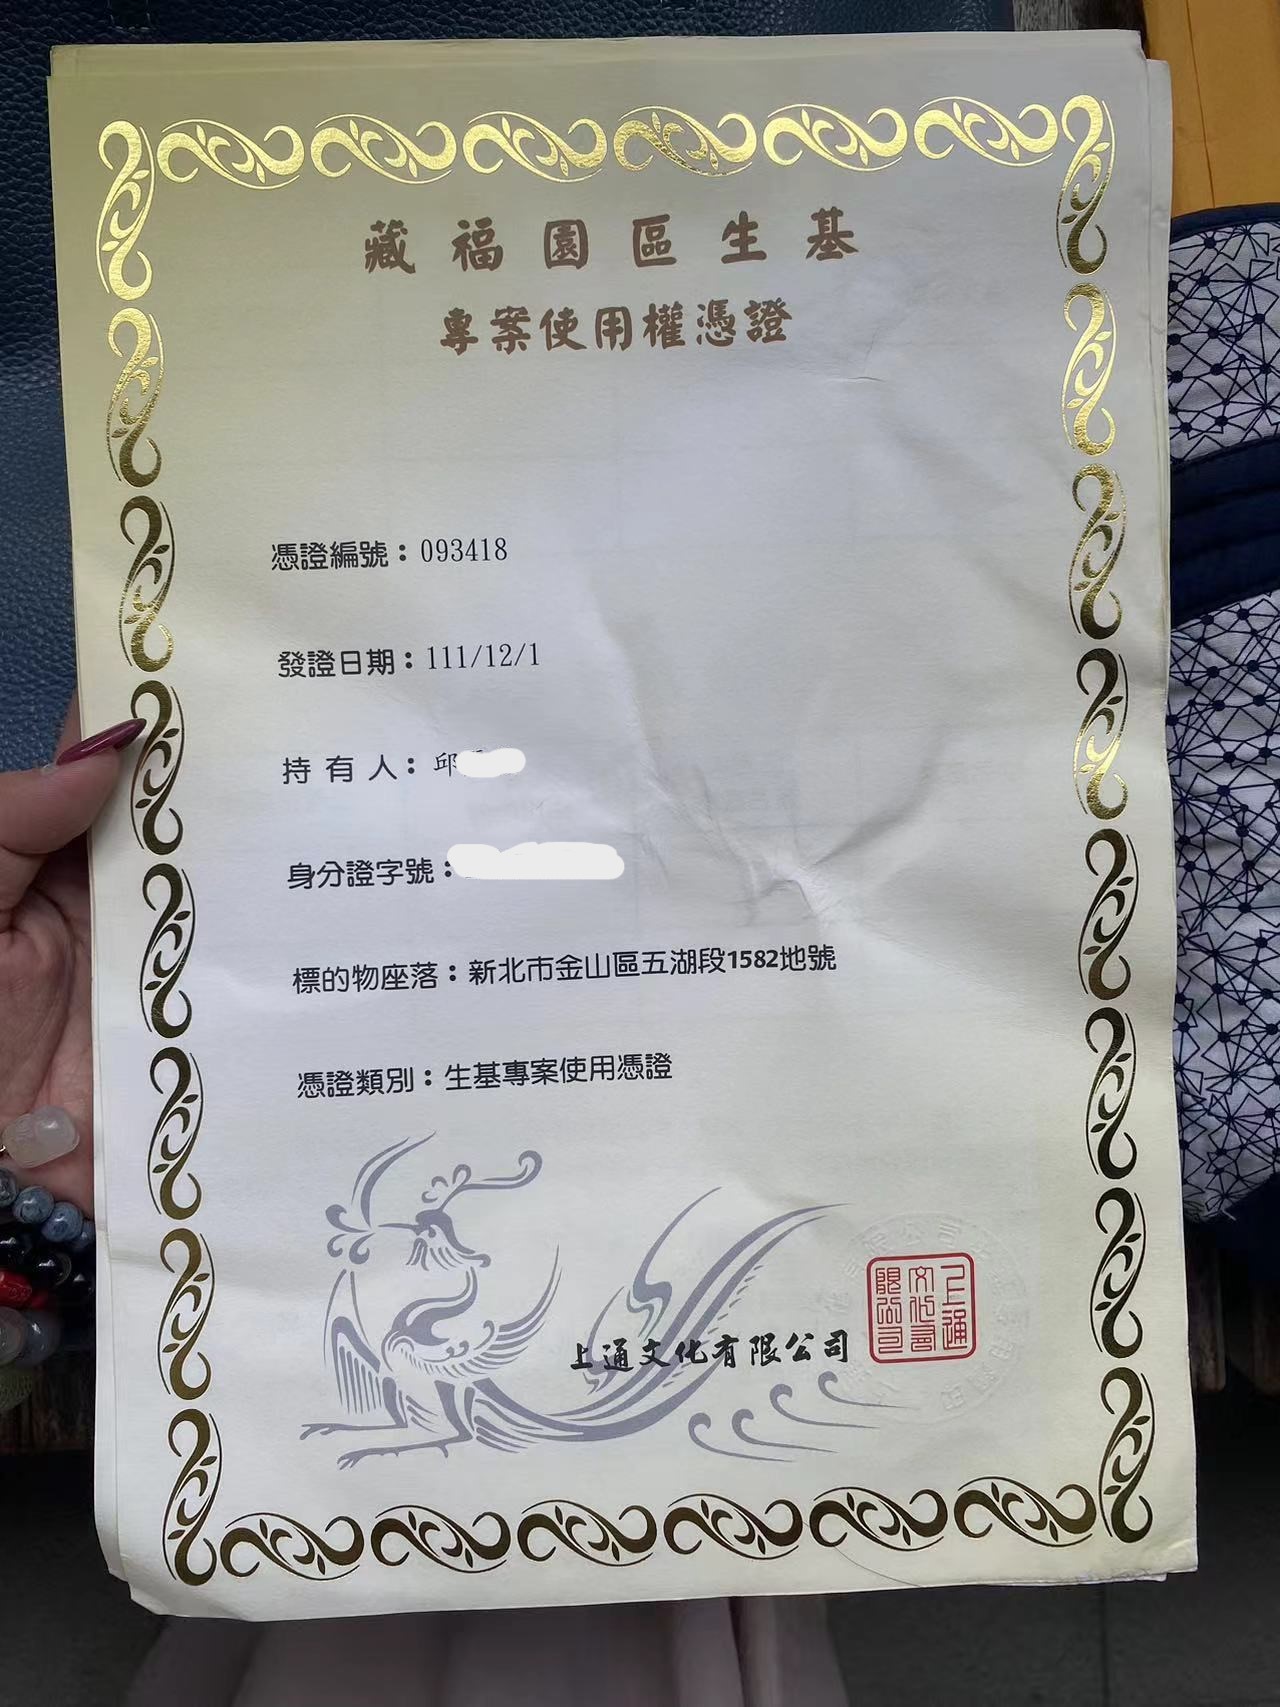 藏福園區生基
專案使用權憑證
憑證編號：093418
發證日期：111/12/1
持有人：邱
身分證字號：
標的物座落：新北市金山區五湖段1582地號
憑證類別：生基專案使用憑證
上通文化有限公司